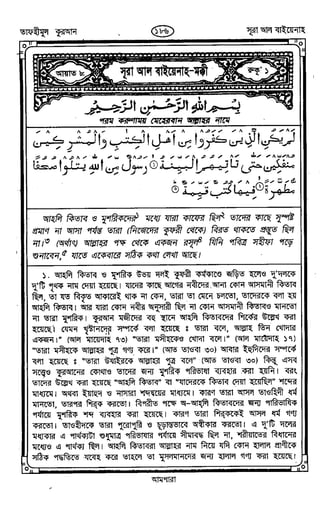 তাফহীমুল কুরআন
১৮৬
সূরা আল বাইয়েনাহ
আয়াত ৮
সূরা আল বাইয়েনাহ-মক্কী
রুকূ' ১
بِسْمِ اللّٰهِ الرَّحْمٰنِ الرَّحِيْمِ
পরম করুণাময় মেহেরবান আল্লাহর নামে
لَمْ يَكُنِ الَّذِيْنَ كَفَرُوْا مِنْ اَهْلِ الْكِتٰبِ وَالْمُشْرِكِيْنَ
مُنْفَكِّيْنَ حَتّٰى تَاْتِيَهُمُ الْبَيِّنَةُ ۝ رَسُوْلٌ مِّنَ اللّٰهِ يَتْلُوْا صُحُفًا
مُّطَهَّرَةً ۝ فِيْهَا كُتُبٌ قَيِّمَةٌ ۝
আহলি কিতাব ও মুশরিকদের মধ্যে যারা কাফের ছিল তাদের কাছে সুস্পষ্ট
প্রমাণ না আসা পর্যন্ত তারা (নিজেদের কুফরী থেকে) বিরত থাকতে প্রস্তুত ছিল
না। (অর্থাৎ) আল্লাহর পক্ষ থেকে একজন রসূল যিনি পবিত্র সহীফা পড়ে
শুনাবেন, যাতে একেবারে সঠিক কথা লেখা আছে।
১. আহলি কিতাব ও মুশরিক উভয় দলই কুফরী কর্মকাণ্ডে জড়িত হলেও দু'দলকে
দু'টি পৃথক নাম দেয়া হয়েছে। যাদের কাছে আগের নবীদের আনা কোন আসমানী কিতাব
ছিল, তা যত বিকৃত আকারেই থাক না কেন, তারা তা মেনে চলতো, তাদেরকে বলা হয়
আহলি কিতাব। আর যারা কোন নবীর অনুসারী ছিল না কোন আসমানী কিতাবও মানতো
না তারা মুশরিক। কুরআন মজীদের বহু স্থানে আহলি কিতাবদের শিরকের উল্লেখ করা
হয়েছে। যেমন খৃস্টানদের সম্পর্কে বলা হয়েছে : তারা বলে, আল্লাহ তিন খোদার
একজন।" (আল মায়েদাহ ৭৩) "তারা মসীহকেও খোদা বলে।" (আল মায়েদাহ ১৭)
"তারা মসীহকে আল্লাহর পুত্র গণ্য করে।" (আত তাওবা ৩০) আবার ইহুদিদের সম্পর্কে
বলা হয়েছে : "তারা উযাইরকে আল্লাহর পুত্র বলে" (আত তাওবা ৩০) কিন্তু এসব
সত্ত্বেও কুরআনের কোথাও তাদের জন্য মুশরিক পরিভাষা ব্যবহার করা হয়নি। বরং
তাদের উল্লেখ করা হয়েছে "আহলি কিতাব" বা "যাদেরকে কিতাব দেয়া হয়েছিল" শব্দের
মাধ্যমে। অথবা ইয়াহুদ ও নাসারা শব্দদ্বয়ের মাধ্যমে। কারণ তারা আসল তাওহীদী ধর্ম
মানতো, তারপর শিরক করতো। বিপরীত পক্ষে অ-আহলি কিতাবদের জন্য পারিভাষিক
পর্যায়ে মুশরিক শব্দ ব্যবহার করা হয়েছে। কারণ তারা শিরককেই আসল ধর্ম গণ্য
করতো। তাওহীদকে তারা পুরোপুরি ও চূড়ান্তভাবে অস্বীকার করতো। এ দু'টি দলের
মধ্যকার এ পার্থক্যটা শুধুমাত্র পরিভাষার পর্যায়ে সীমাবদ্ধ ছিল না, শরীয়াতের বিধানের
মধ্যেও এ পার্থক্য ছিল। আহলি কিতাবরা আল্লাহর নাম নিয়ে যদি কোন হালাল প্রাণীকে
সঠিক পদ্ধতিতে যবেহ করে তাহলে তা মুসলমানদের জন্য হালাল গণ্য করা হয়েছে।
আমপারা